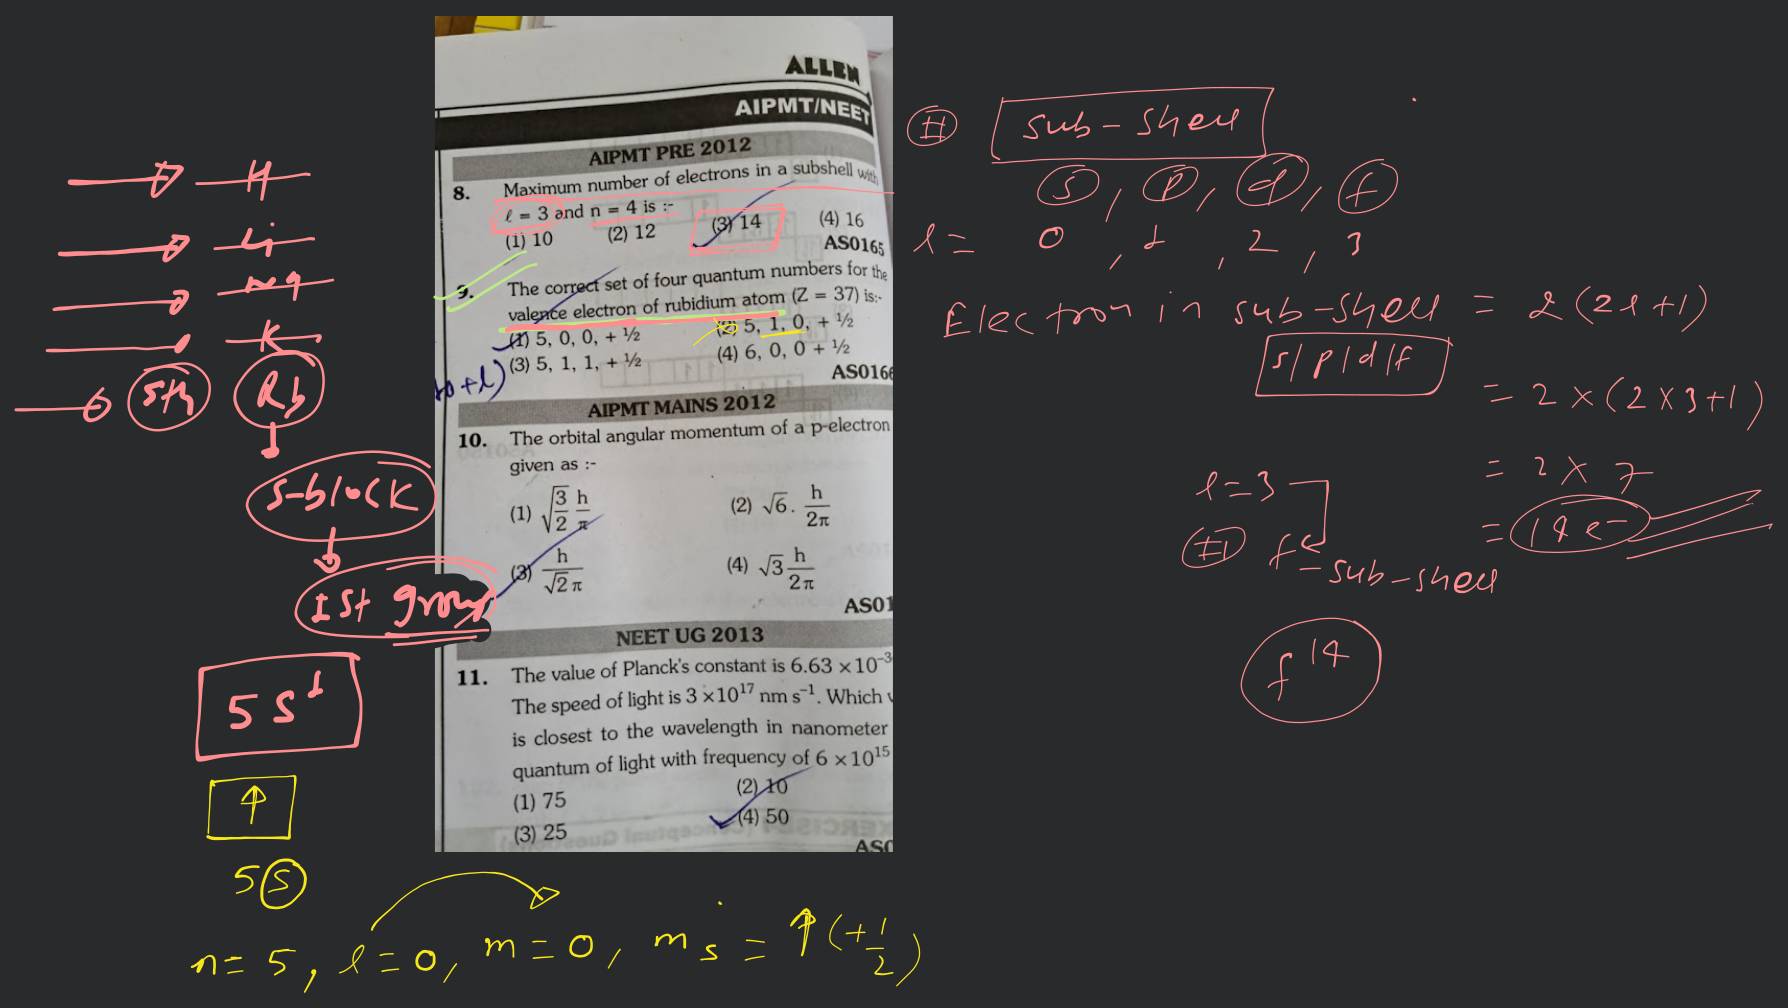 H
Li
Na
K
5th Rb
s-block
1st group
5s¹
↑
5s
n=5, l=0, m=0, ms = ↑(+1/2)
ALLEN
AIPMT/NEET
AIPMT PRE 2012
8. Maximum number of electrons in a subshell with
ℓ = 3 and n = 4 is :-
(1) 10 (2) 12 (3) 14 (4) 16
AS0165
9. The correct set of four quantum numbers for the
valence electron of rubidium atom (Z = 37) is:-
(1) 5, 0, 0, + ½ (2) 5, 1, 0, + ½
(3) 5, 1, 1, + ½ (4) 6, 0, 0 + ½
+l)
AS0166
AIPMT MAINS 2012
10. The orbital angular momentum of a p-electron
given as :-
(1) √3/2 h/π (2) √6 . h/2π
(3) h/√2π (4) √3 h/2π
AS01
NEET UG 2013
11. The value of Planck's constant is 6.63 × 10⁻³
The speed of light is 3 ×10¹⁷ nm s⁻¹. Which
is closest to the wavelength in nanometer
quantum of light with frequency of 6 × 10¹⁵
(1) 75 (2) 10
(3) 25 (4) 50
# Sub-shell
s, p, d, f
l = 0, 1, 2, 3
Electron in sub-shell = 2(2l+1)
s/p/d/f
= 2×(2×3+1)
= 2×7
= 14e-
l=3
# f-sub-shell
f¹⁴